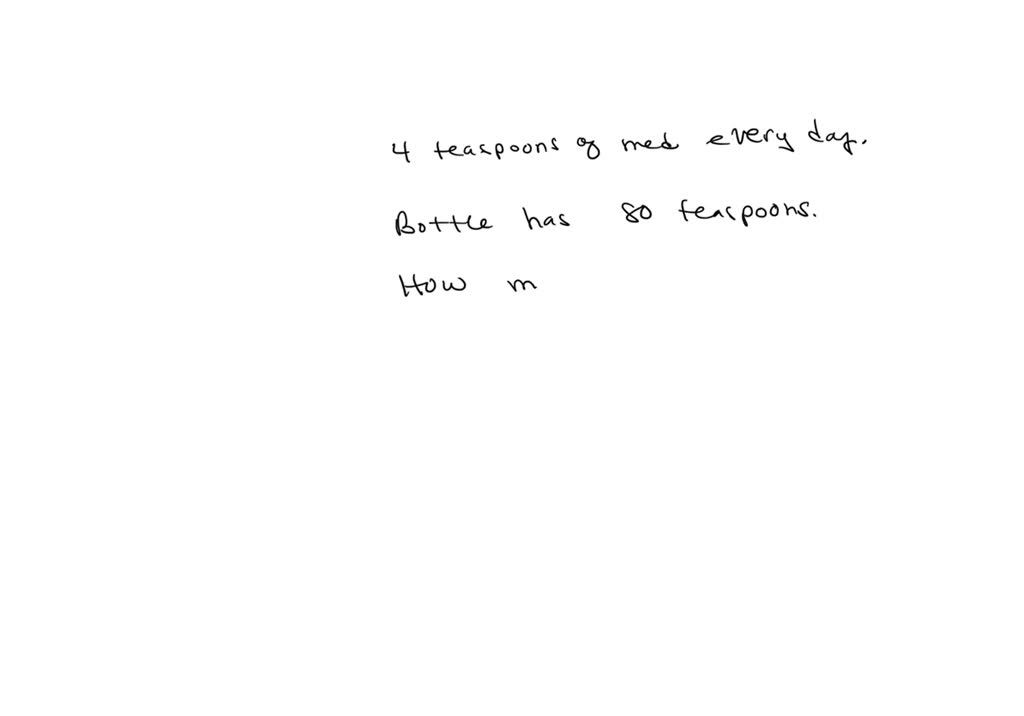 4 teaspoons of med every day.
Bottle has 80 teaspoons.
How m